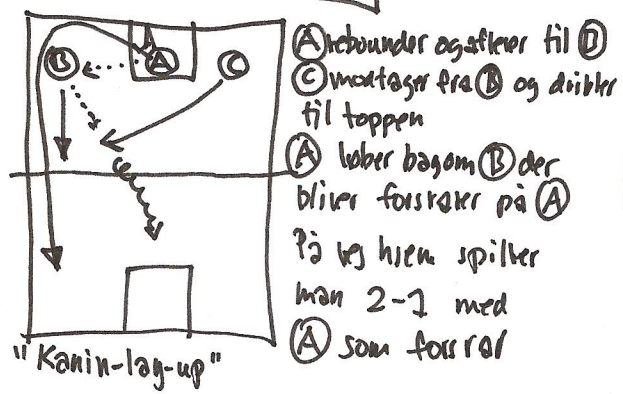 B A C
A rebounder og aflever til B
C modtager fra B og dribler
til toppen
A løber bagom B der
bliver forsvarer på A
På vej hjem spiller
man 2-1 med
A som forsvar
"Kanin-lay-up"